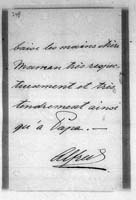 baise les mains chère
Maman très respec
tueusement et très
tendrement ainsi
qu'à Papa. —
Alfred